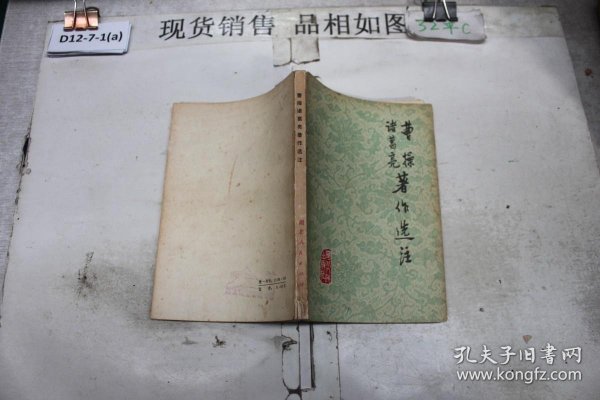 D12-7-1(a)
现货销售 品相如图
曹操
诸葛亮
著作选注
曹操诸葛亮著作选注
湖北人民出版社
孔夫子旧书网
www.kongfz.com